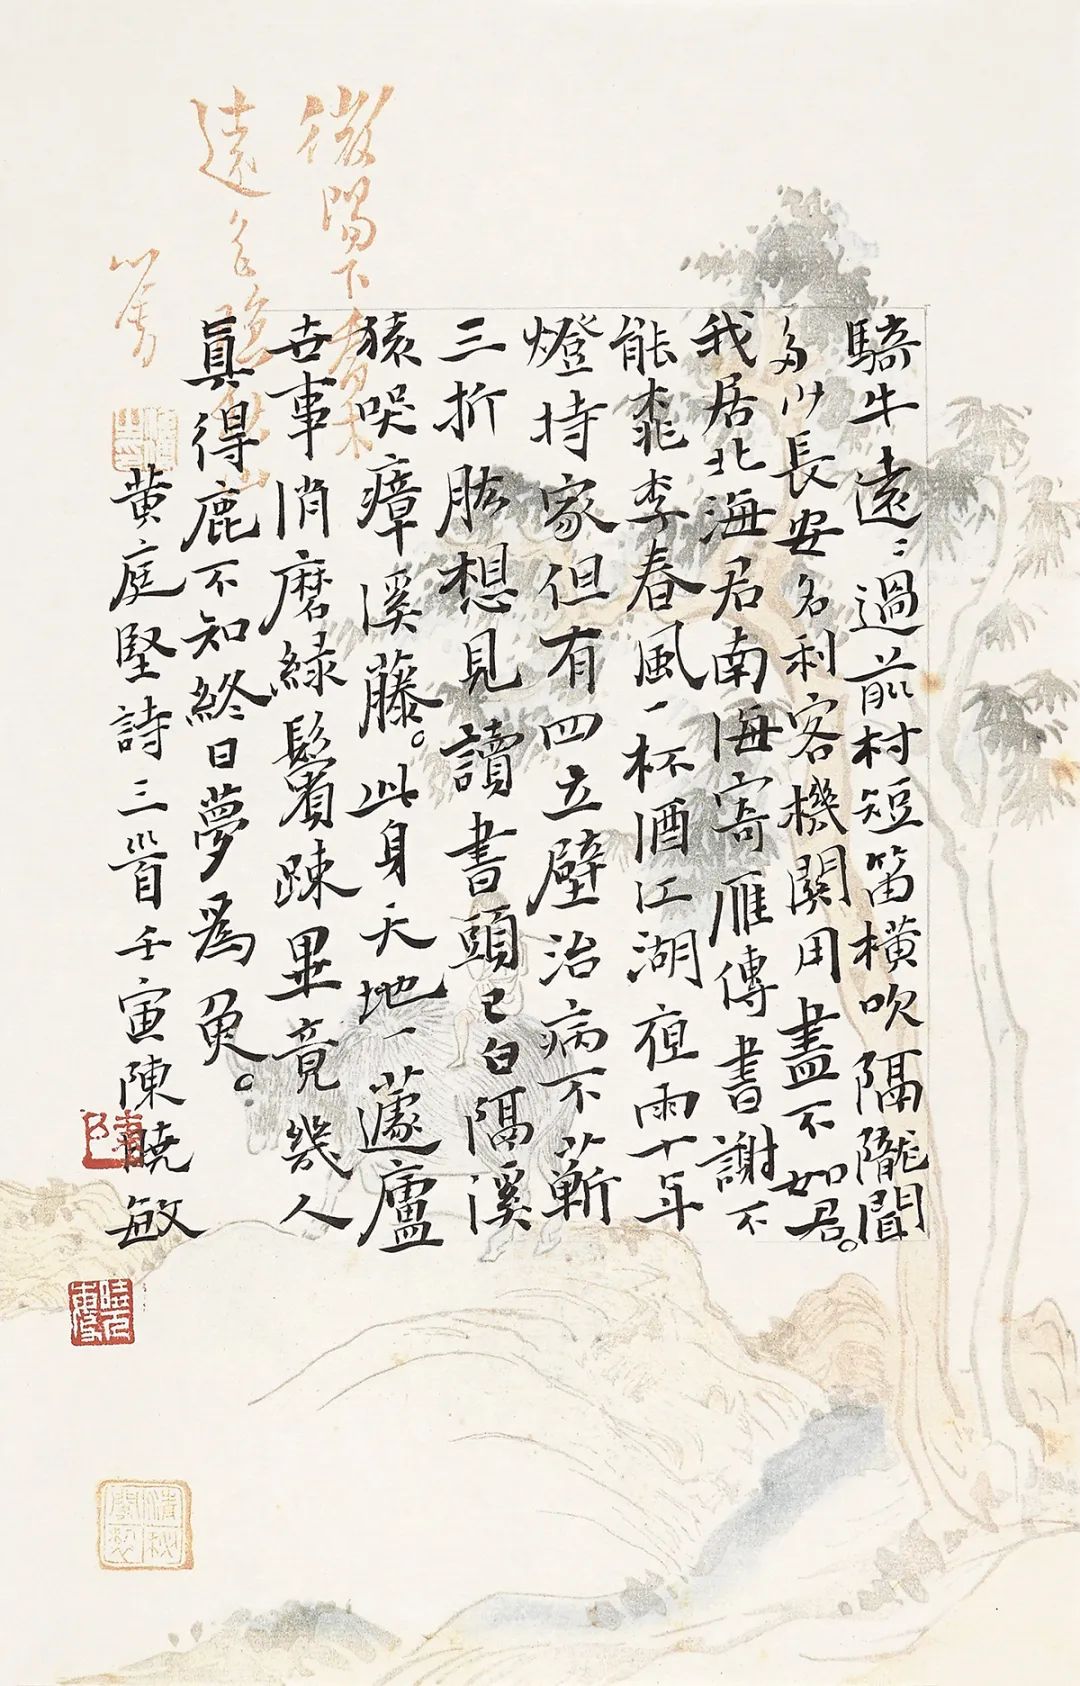 騎牛遠〻過前村短笛橫吹隔隴聞
多少長安名利客機關用盡不如君。
我居北海君南海寄雁傳書謝不
能桃李春風一杯酒江湖夜雨十年
燈持家但有四立壁治病不蘄
三折肱想見讀書頭已白隔溪
猿哭瘴溪藤。此身天地一蘧廬
世事消磨綠鬢疎畢竟幾人
真得鹿不知終日夢為魚。
黃庭堅詩三首壬寅陳曉敏
微陽下喬木
遠色隱秋山
心畬
清秘閣製